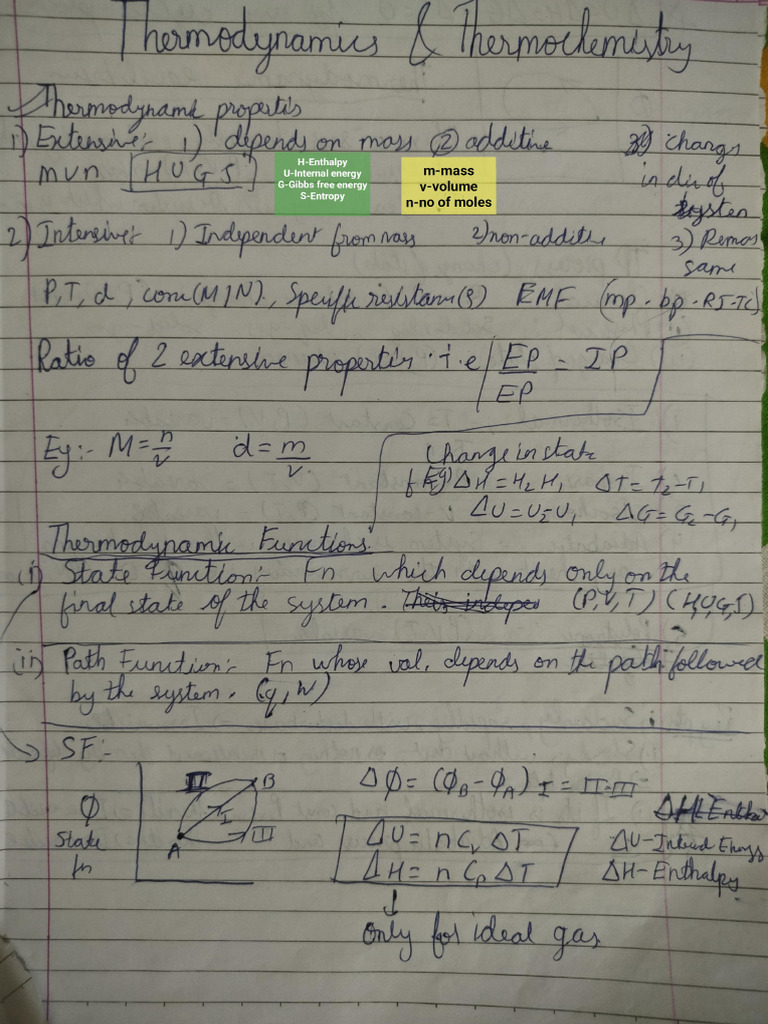 Thermodynamics & Thermochemistry
Thermodynamic properties
1) Extensive:- 1) depends on mass 2) additive 3) changes
in div of
system
m v n H U G S
H-Enthalpy
U-Internal energy
G-Gibbs free energy
S-Entropy
m-mass
v-volume
n-no of moles
2) Intensive:- 1) Independent from mass 2) non-additive 3) Remas
same
P, T, d, conc(M/N), Specific resistance(ρ) EMF (mp. bp. RI-TC)
Ratio of 2 extensive properties i.e EP/EP = IP
Eg:- M = n/v d = m/v
Change in state
Eg) ΔH = H2 H1 ΔT = T2-T1
ΔU = U2-U1 ΔG = G2-G1
Thermodynamic Functions:
(i) State Function:- Fn which depends only on the
final state of the system. (P,V,T) (H,U,G,S)
(ii) Path Function:- Fn whose val. depends on the path followed
by the system. (q,w)
SF:-
II B
I
A III
φ
State
fn
Δφ = (φB - φA) I = II = III
ΔU = n Cv ΔT
ΔH = n Cp ΔT
ΔU - Internal Energy
ΔH - Enthalpy
Only for ideal gas